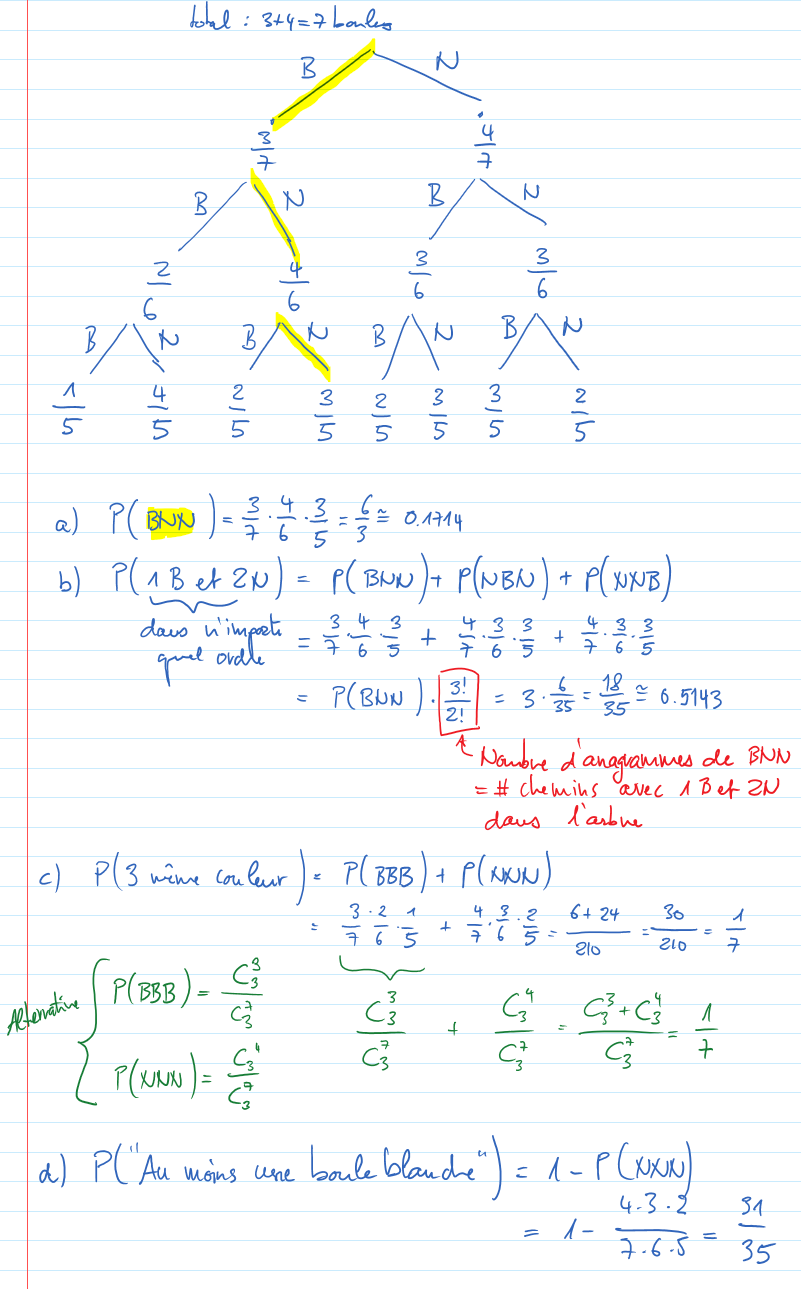 total : 3+4=7 boules
B N
3/7 4/7
B N B N
2/6 4/6 3/6 3/6
B N B N B N B N
1/5 4/5 2/5 3/5 2/5 3/5 3/5 2/5
a) P(BNN) = 3/7 · 4/6 · 3/5 = 6/3 ≅ 0.1714
b) P(1 B et 2N) = P(BNN) + P(NBN) + P(NNB)
dans n'importe = 3/7 · 4/6 · 3/5 + 4/7 · 3/6 · 3/5 + 4/7 · 3/6 · 3/5
quel ordre
= P(BNN) · 3!/2! = 3 · 6/35 = 18/35 ≅ 0.5143
Nombre d'anagrammes de BNN
= # chemins avec 1 B et 2N
dans l'arbre
c) P(3 même couleur) = P(BBB) + P(NNN)
= 3/7 · 2/6 · 1/5 + 4/7 · 3/6 · 2/5 = 6+24/210 = 30/210 = 1/7
Alternative P(BBB) = C₃³/C₃⁷ C₃³/C₃⁷ + C₃⁴/C₃⁷ = C₃³+C₃⁴/C₃⁷ = 1/7
P(NNN) = C₃⁴/C₃⁷
d) P("Au moins une boule blanche") = 1 - P(NNN)
= 1 - 4·3·2/7·6·5 = 31/35